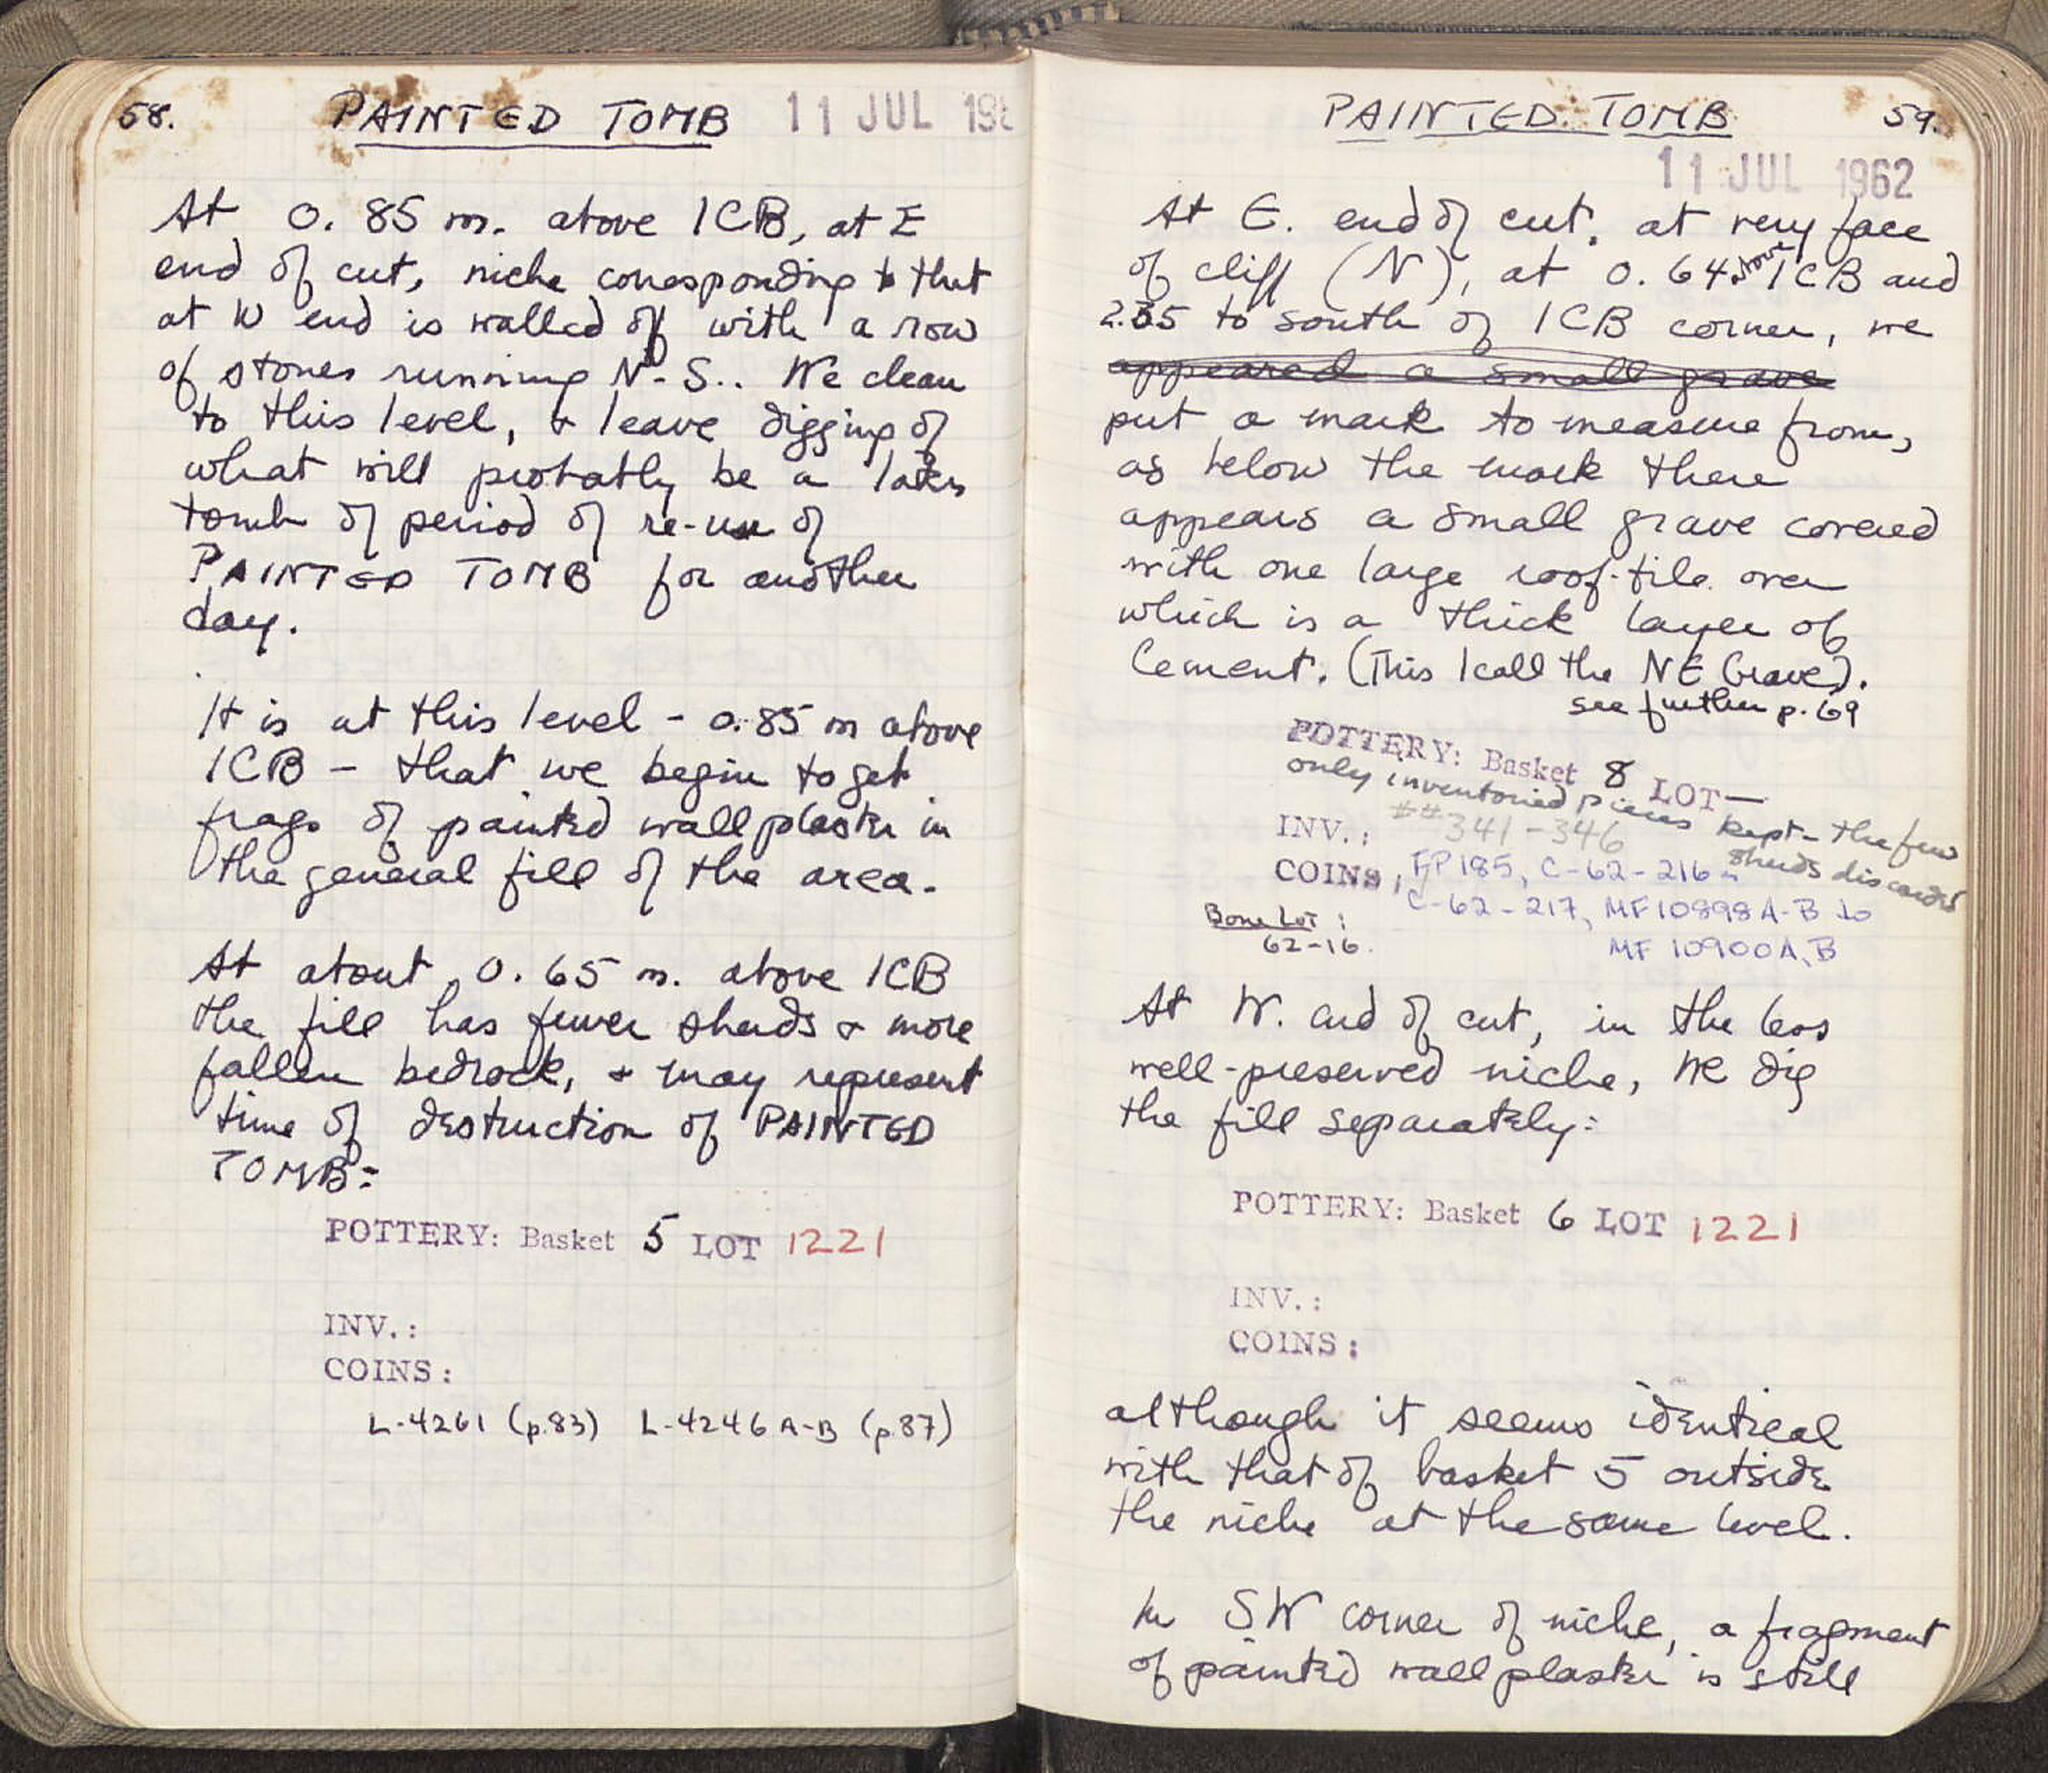 58. PAINTED TOMB 11 JUL 196
At 0.85 m. above ICB, at E
end of cut, niche corresponding to that
at W end is walled off with a row
of stones running N-S.. We clean
to this level, & leave digging of
what will probably be a later
tomb of period of re-use of
PAINTED TOMB for another
day.
It is at this level - 0.85 m above
ICB - that we begin to get
frags of painted wall plaster in
the general fill of the area.
At about 0.65 m. above ICB
the fill has fewer sherds & more
fallen bedrock, & may represent
time of destruction of PAINTED
TOMB:
POTTERY: Basket 5 LOT 1221
INV.:
COINS:
L-4261 (p.83) L-4246 A-B (p.87)
PAINTED TOMB 59.
11 JUL 1962
At E. end of cut, at very face
of cliff (N), at 0.64 above ICB and
2.35 to south of ICB corner, we
appeared a small grave
put a mark to measure from,
as below the mark there
appears a small grave covered
with one large roof-tile over
which is a thick layer of
cement. (This I call the NE Grave).
see further p. 69
POTTERY: Basket 8 LOT —
only inventoried pieces kept - the few
sherds discarded
INV.: ## 341-346
COINS: FP 185, C-62-216
C-62-217, MF 10898 A-B to
MF 10900 A, B
Bone Lot:
62-16.
At W. end of cut, in the less
well-preserved niche, we dig
the fill separately:
POTTERY: Basket 6 LOT 1221
INV.:
COINS:
although it seems identical
with that of basket 5 outside
the niche at the same level.
In SW corner of niche, a fragment
of painted wall plaster is still